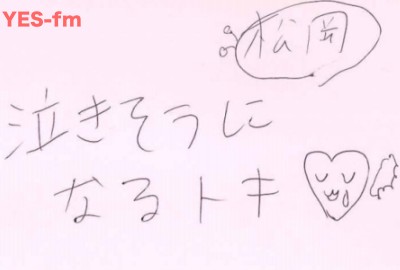 YES-fm
松岡
泣きそうに
なるトキ